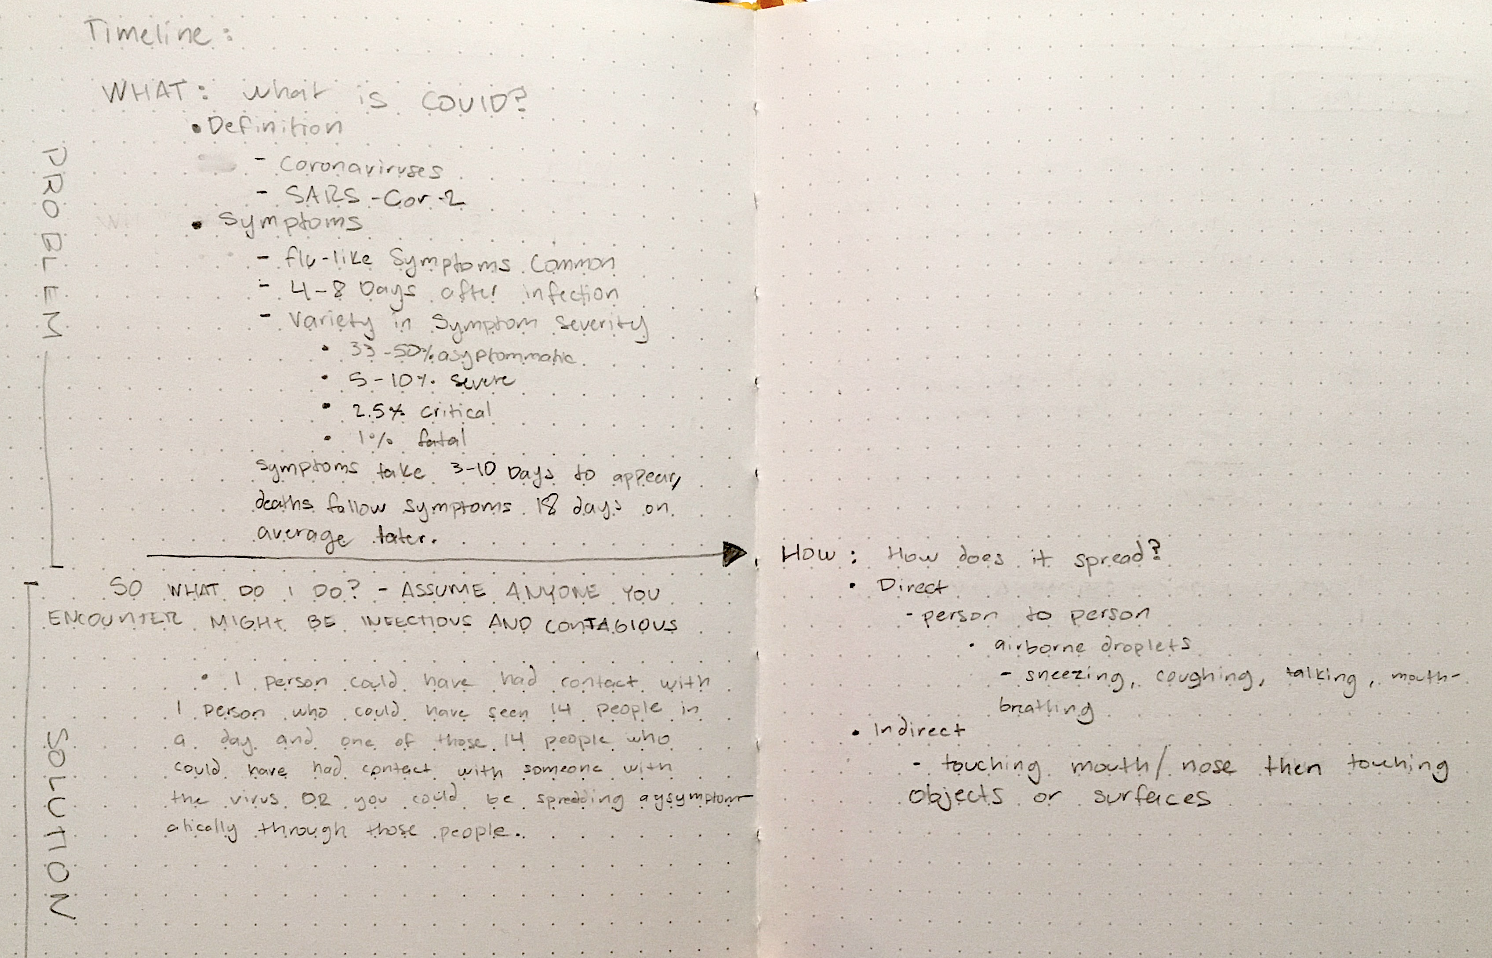 Timeline:
WHAT: what is COVID?
• Definition
- Coronaviruses
- SARS-Cor-2
• Symptoms
- flu-like Symptoms Common
- 4-8 Days after infection
- Variety in Symptom Severity
• 33-50% asyptommatic
• 5-10% severe
• 2.5% critical
• 1% fatal
symptoms take 3-10 Days to appear,
deaths follow symptoms 18 days on
average later.
PROBLEM
SO WHAT DO I DO? - ASSUME ANYONE YOU
ENCOUNTER MIGHT BE INFECTIOUS AND CONTAGIOUS
• 1 person could have had contact with
1 person who could have seen 14 people in
a day and one of those 14 people who
could have had contact with someone with
the virus OR you could be spredding aysymptom-
atically through those people.
SOLUTION
How: How does it spread?
• Direct
- person to person
• airborne droplets
- sneezing, coughing, talking, mouth-
breathing
• Indirect
- touching mouth/nose then touching
objects or surfaces